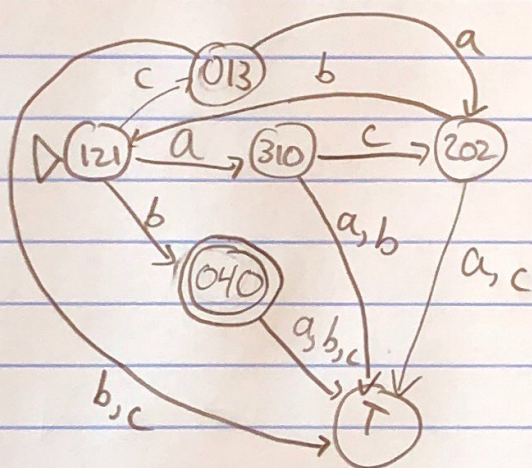 013
a
c
b
121
a
310
c
202
b
a,b
a,c
040
a,b,c
b,c
T